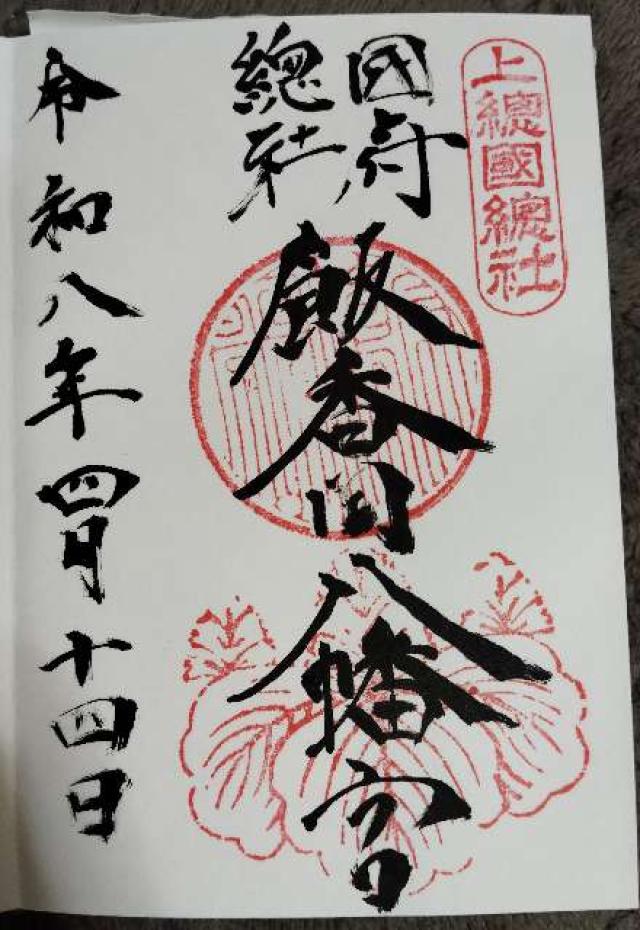 上總國總社
國府
總社
飯香岡八幡宮
令和八年四月十四日